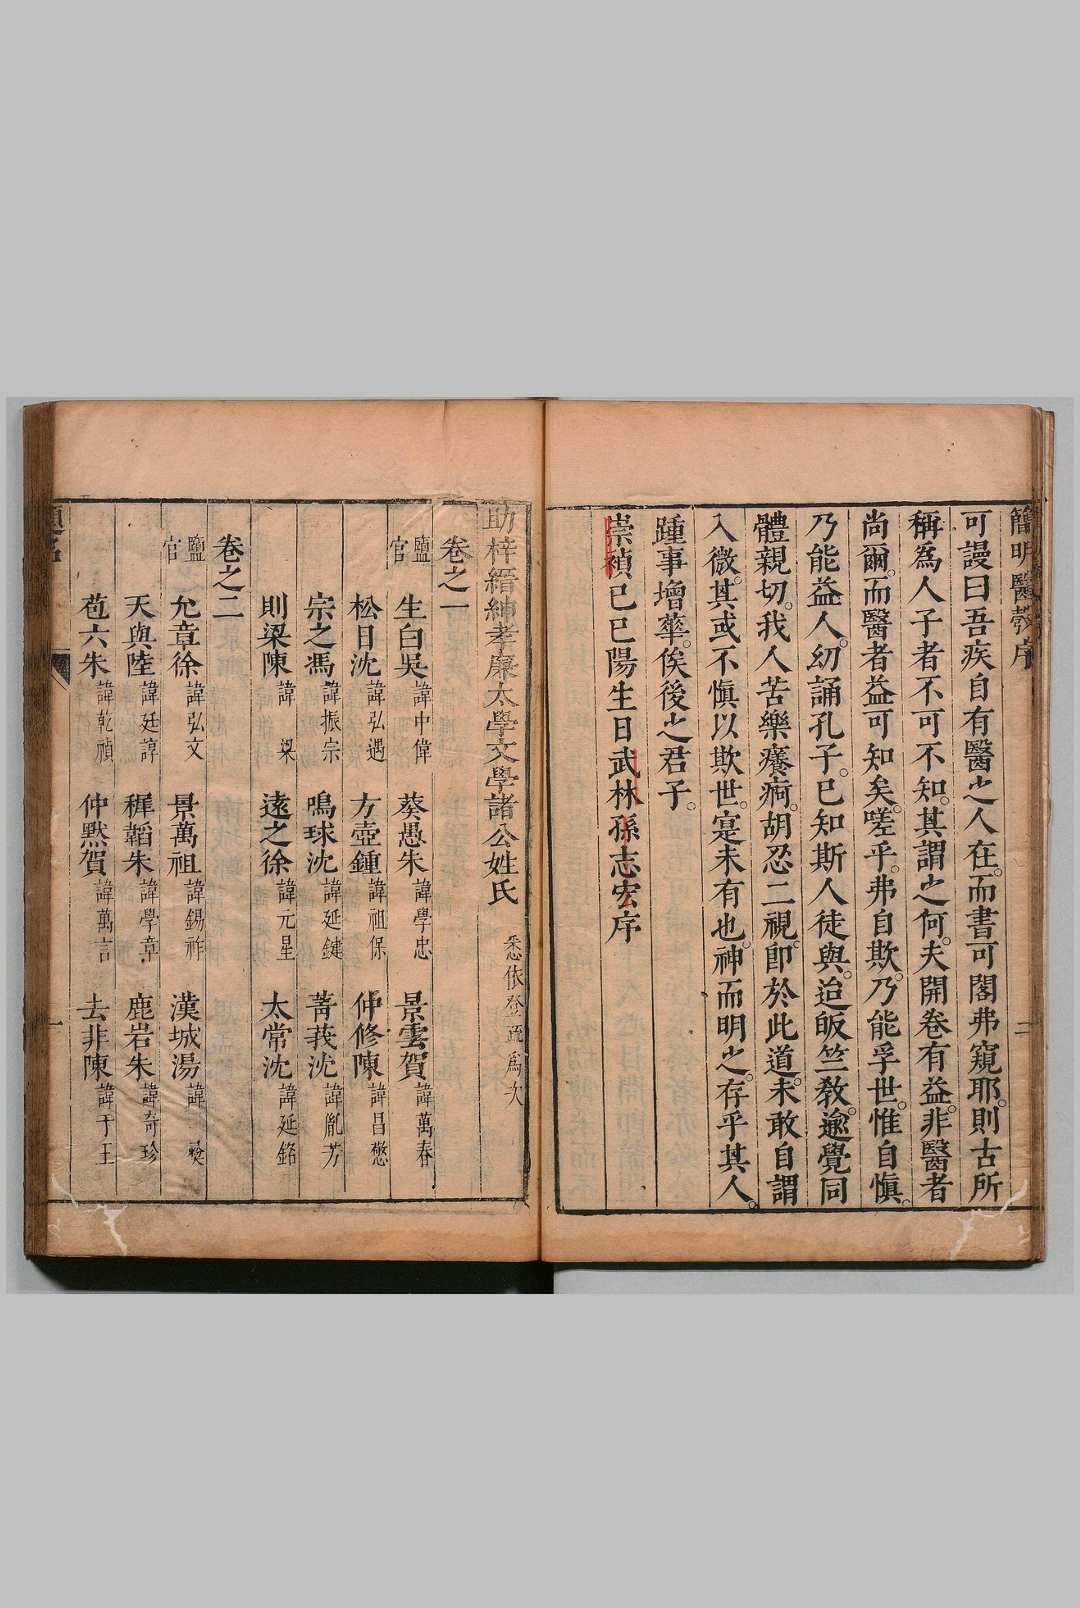 簡明醫彀序
二
可謾曰吾疾自有醫之人在。而書可閣弗窺耶。則古所
稱為人子者不可不知。其謂之何。夫開卷有益。非醫者
尚爾。而醫者益可知矣。嗟乎。弗自欺。乃能孚世。惟自慎。
乃能益人。幼誦孔子。已知斯人徒與。迨皈竺教。逾覺同
體親切。我人苦樂癢痾。胡忍二視。即於此道。未敢自謂
入微。其或不慎以欺世。寔未有也。神而明之。存乎其人。
踵事增華。俟後之君子。
崇禎己巳陽生日武林孫志宏序
助梓縉紳孝廉太學文學諸公姓氏 悉依登函為次
卷之一
鹽官 生白吳諱中偉 葵愚朱諱學忠 景雲賀諱萬春
松日沈諱弘遇 方壺鍾諱祖保 仲修陳諱昌
宗之馮諱振宗 鳴球沈諱延鍵 菁莪沈諱胤芳
則梁陳諱梁 遠之徐諱元星 太常沈諱延銘
卷之二
鹽官 允章徐諱弘文 景萬祖諱錫祚 漢城湯諱
天與陸諱廷諄 穉韜朱諱學章 鹿岩朱諱奇珍
苞六朱諱乾禎 仲默賀諱萬言 去非陳諱于王
題名
一